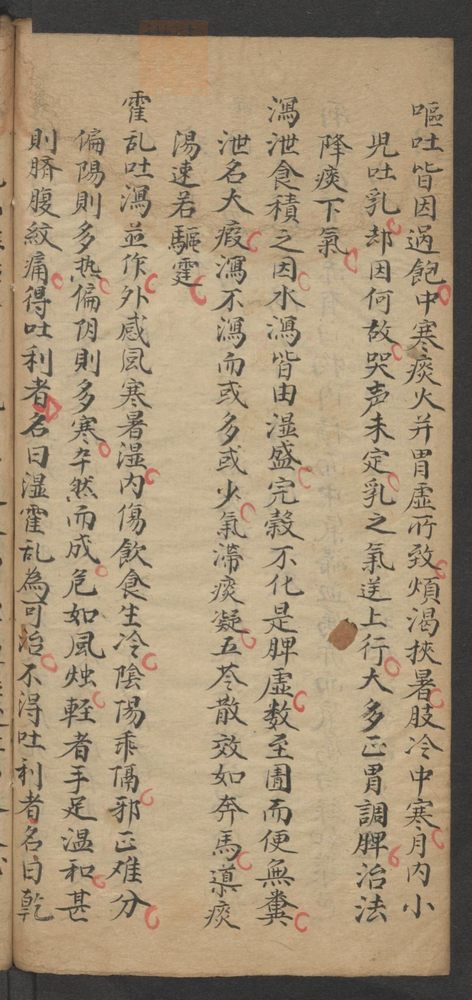 嘔吐皆因過飽中寒痰火并胃虛所致煩渴挾暑肢冷中寒月内小
児吐乳却因何故哭声未定乳之氣逆上行大多正胃調脾治法
降痰下氣
瀉泄食積之因水瀉皆由湿盛完榖不化是脾虛数至圊而便無糞
泄名大瘕瀉不瀉而或多或少氣滯痰凝五苓散效如奔馬導痰
湯速若驅霆
霍乱吐瀉並作外感風寒暑湿内傷飲食生冷陰陽乖隔邪正难分
偏陽則多热偏阴則多寒卒然而成危如風烛輕者手足温和甚
則臍腹絞痛得吐利者名曰湿霍乱為可治不得吐利者名曰乾